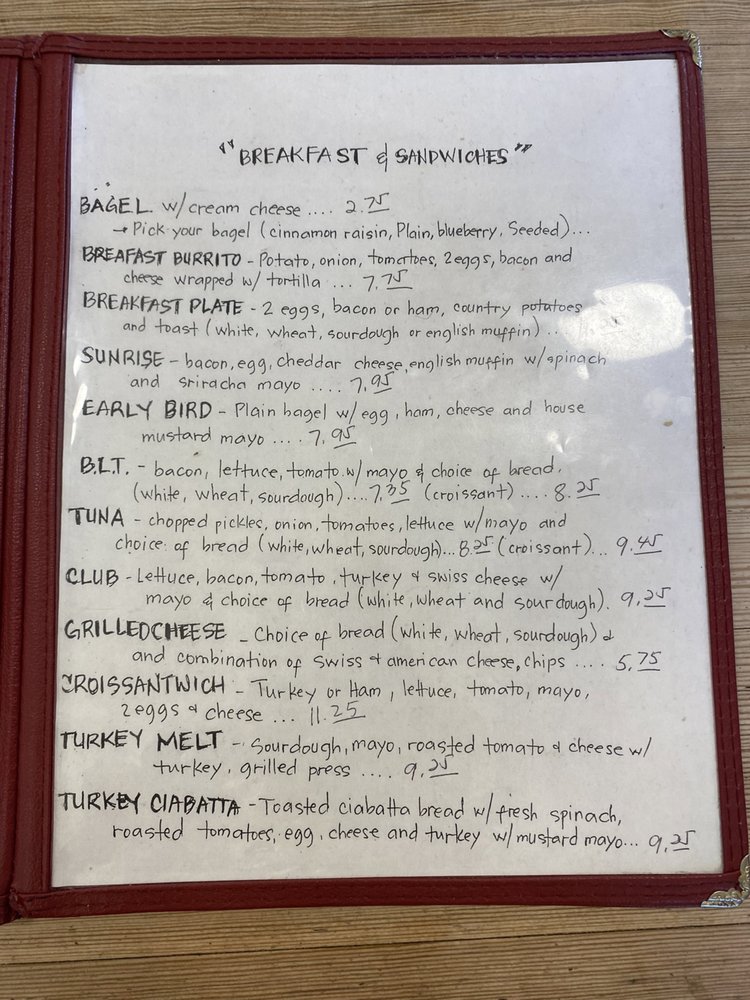 "BREAKFAST & SANDWICHES"
BAGEL w/cream cheese .... 2.75
→ Pick your bagel (cinnamon raisin, Plain, blueberry, Seeded)...
BREAFAST BURRITO - Potato, onion, tomatoes, 2eggs, bacon and
cheese wrapped w/ tortilla ... 7.75
BREAKFAST PLATE - 2 eggs, bacon or ham, country potatoes
and toast (white, wheat, sourdough or english muffin) ..
SUNRISE - bacon, egg, cheddar cheese, english muffin w/spinach
and sriracha mayo .... 7.95
EARLY BIRD - Plain bagel w/ egg, ham, cheese and house
mustard mayo .... 7.95
B.L.T. - bacon, lettuce, tomato w/ mayo & choice of bread.
(white, wheat, sourdough)....7.35 (croissant) .... 8.25
TUNA - chopped pickles, onion, tomatoes, lettuce w/mayo and
choice of bread (white, wheat, sourdough)...8.25 (croissant)... 9.45
CLUB - Lettuce, bacon, tomato, turkey & swiss cheese w/
mayo & choice of bread (white, wheat and sourdough). 9.25
GRILLEDCHEESE - Choice of bread (white, wheat, sourdough) &
and combination of swiss & american cheese, chips .... 5.75
CROISSANTWICH - Turkey or Ham, lettuce, tomato, mayo,
2eggs & cheese ... 11.25
TURKEY MELT - Sourdough, mayo, roasted tomato & cheese w/
turkey, grilled press .... 9.25
TURKEY CIABATTA - Toasted ciabatta bread w/ fresh spinach,
roasted tomatoes, egg, cheese and turkey w/mustard mayo... 9.25